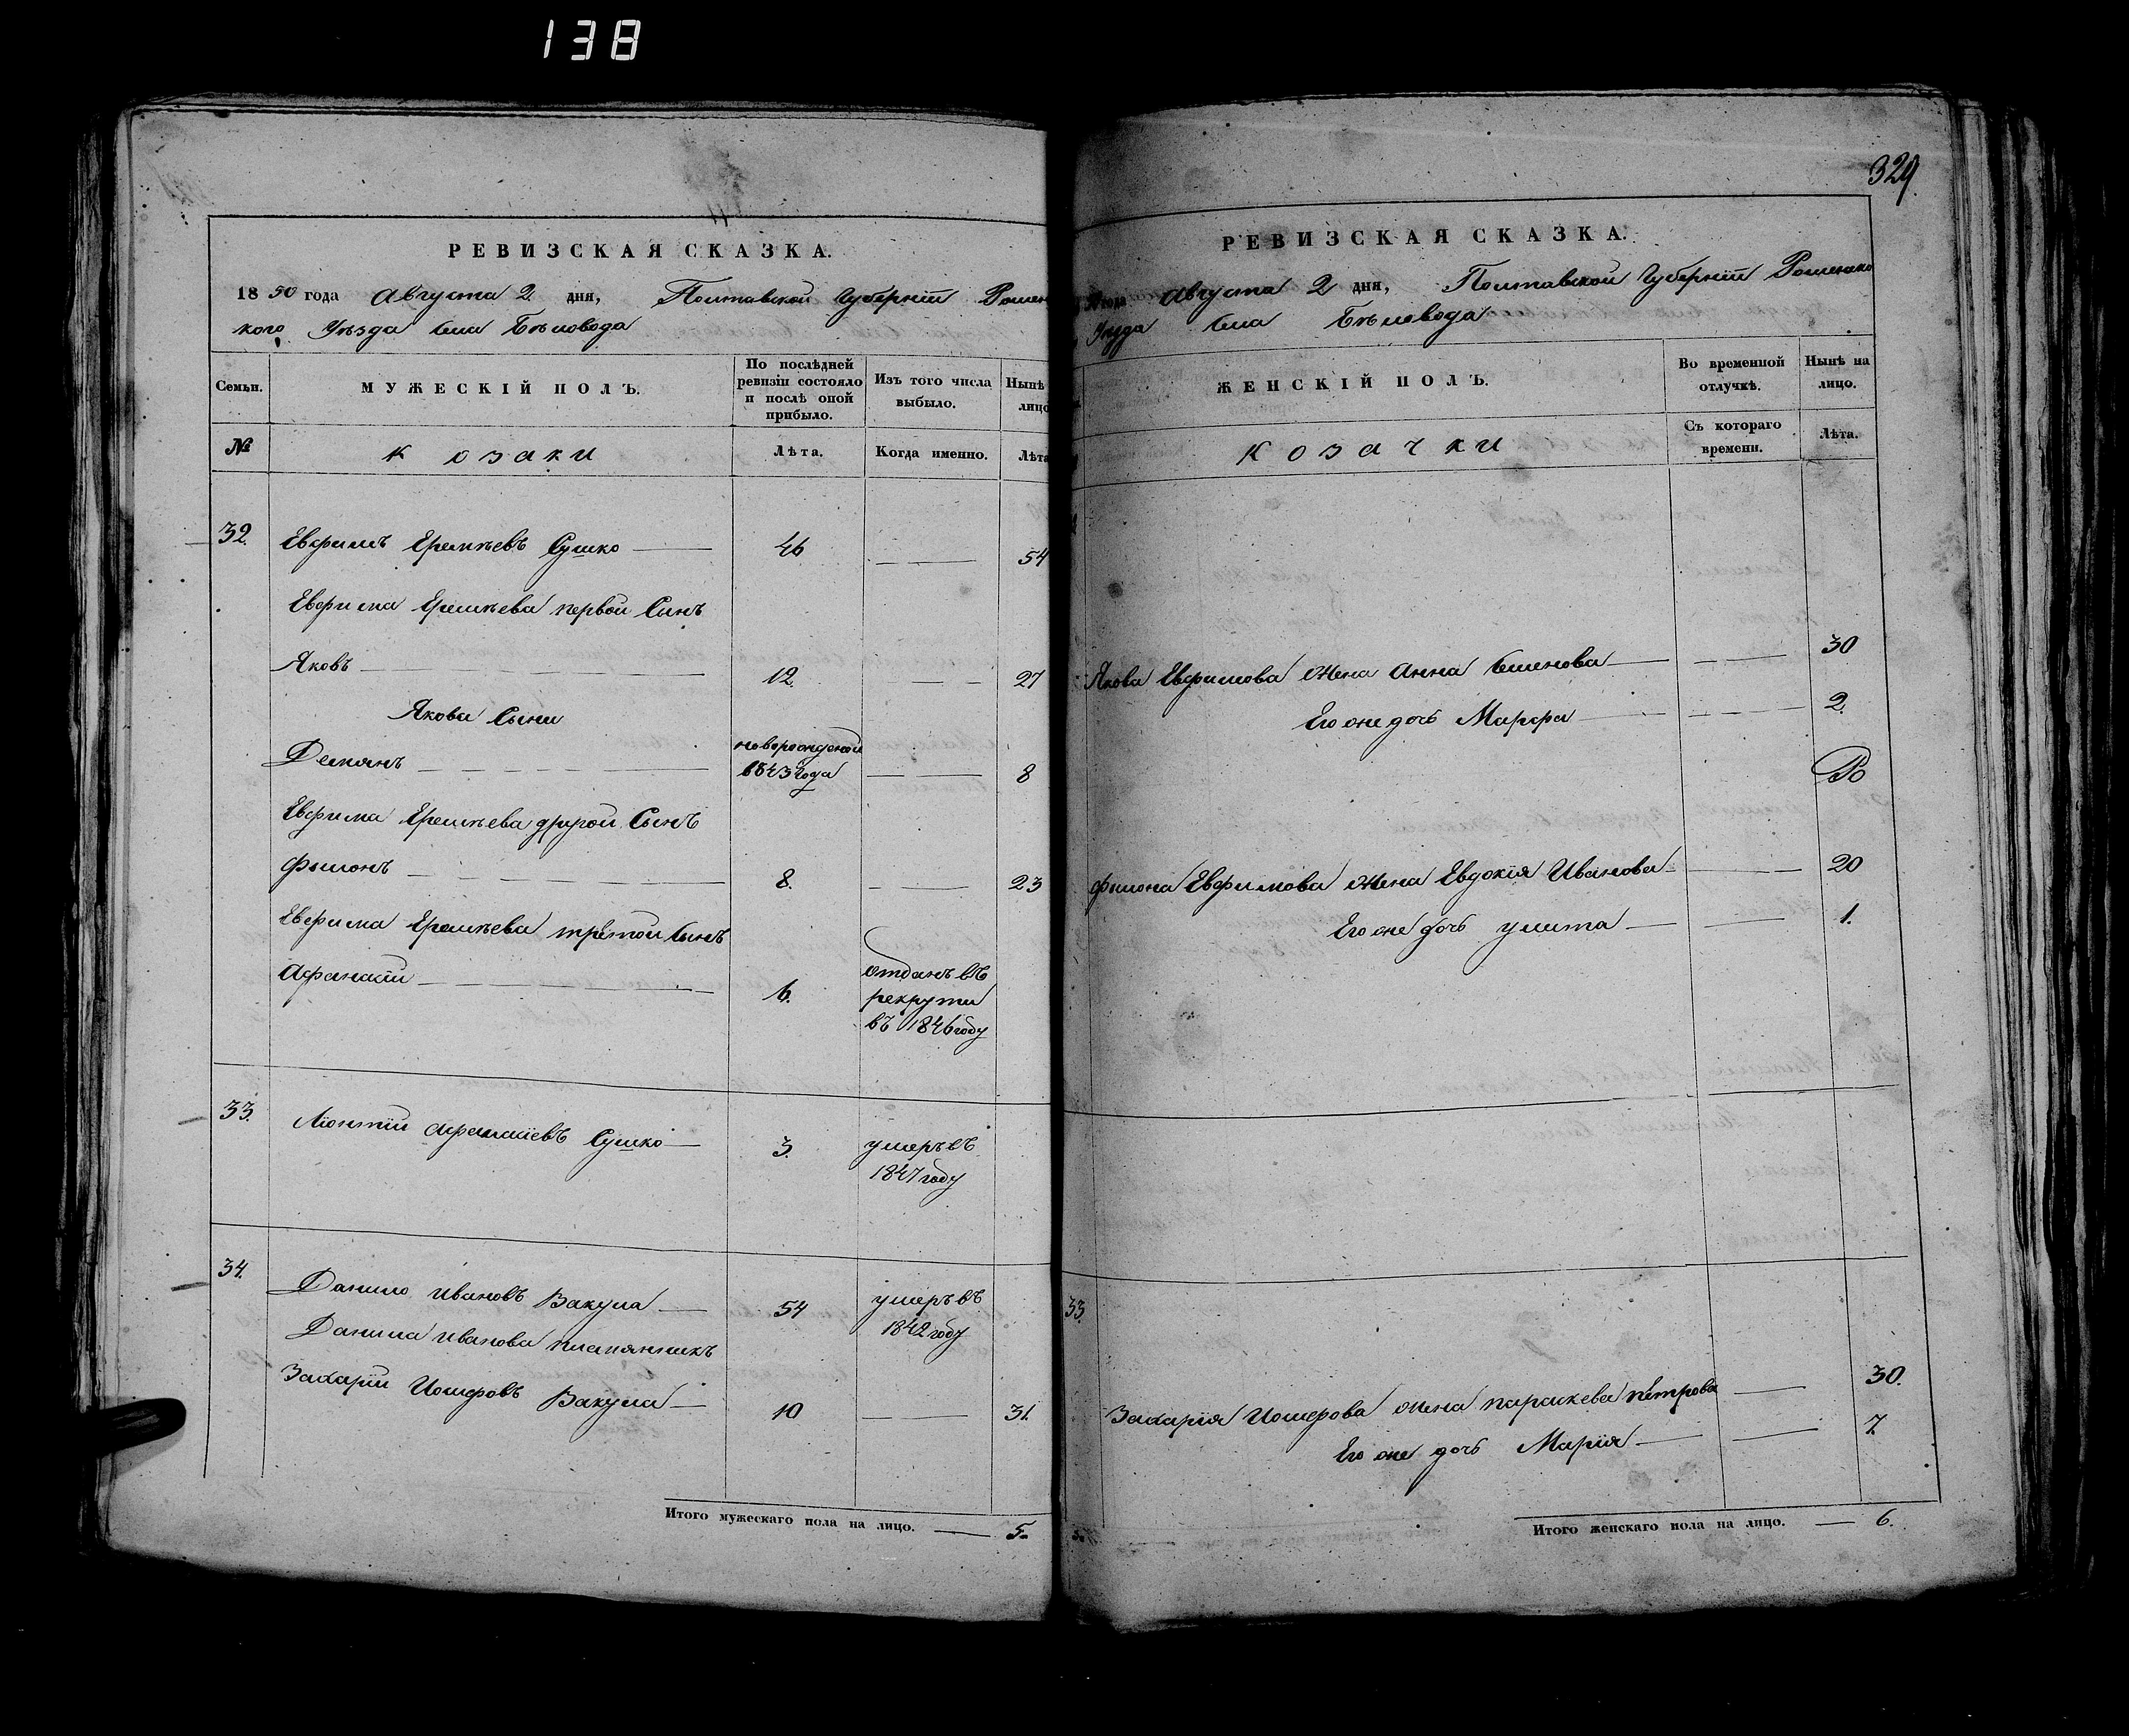 138
РЕВИЗСКАЯ СКАЗКА.
1850 года Августа 2 дня, Полтавской Губерніи Ромен
кого Уѣзда села Бѣловода
Семьи.
МУЖЕСКІЙ ПОЛЪ.
По послѣдней
ревизіи состояло
и послѣ оной
прибыло.
Изъ того числа
выбыло.
Нынѣ
лицо
№
Козаки
Лѣта.
Когда именно.
Лѣта
32. Евфимъ Еремѣевъ Сушко 46 54
Евфима Еремѣева первой Сынъ
Яковъ 12. 27
Якова Сыни
новорожденой
Демянъ в 843 года 8
Евфима Еремѣева другой Сынъ
Филонъ 8. 23
Евфима Еремѣева третой Сынъ
Афанасій 6. отданъ въ
рекрути
въ 1846 году
33. Лѣонтій Афанасіевъ Сушко 3. умеръ въ
1847 году
34. Данило Ивановъ Вакула 54 умеръ въ
1842 году
Данила Иванова племянникъ
Захарій Иосифовъ Вакула 10 31.
Итого мужескаго пола на лицо. 5.
329.
РЕВИЗСКАЯ СКАЗКА.
года Августа 2 дня, Полтавской Губерніи Роменско
Уѣзда села Бѣловода
ЖЕНСКІЙ ПОЛЪ.
Во временной
отлучкѣ.
Нынѣ на
лицо.
Козачки
Съ котораго
времени.
Лѣта.
Якова Евфимова жена Анна Семенова 30
Его же дочь Марфа 2.
Филона Евфимова жена Евдокія Иванова 20
Его же дочь улита 1.
33.
Захарія Иосифова жена параскева петрова 30.
Его же дочь Марія 7.
Итого женскаго пола на лицо. 6.